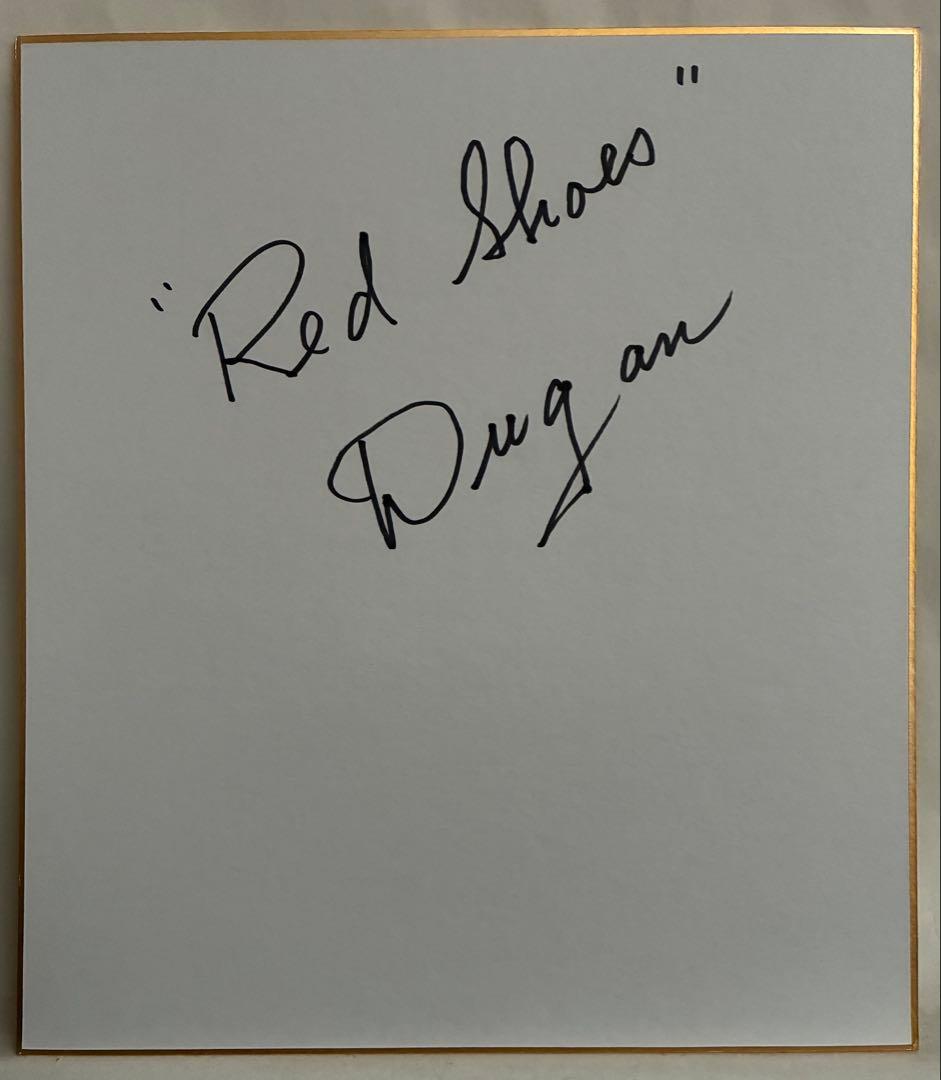 "Red Shoes"
Dugan